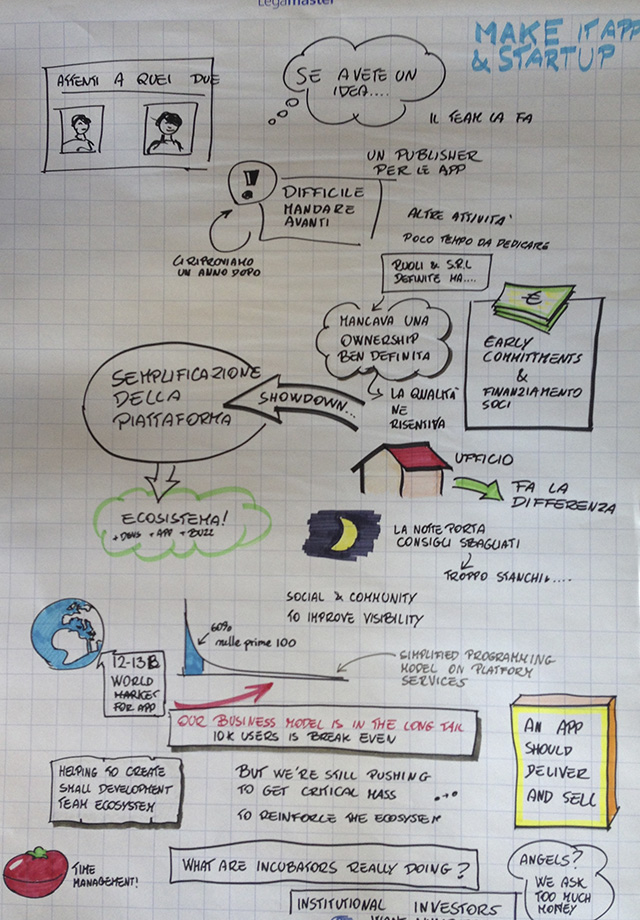 Legamaster
MAKE IT APP
& STARTUP
ATTENTI A QUEI DUE
SE AVETE UN
IDEA....
IL TEAM LA FA
UN PUBLISHER
PER LE APP
!
DIFFICILE
MANDARE
AVANTI
CI RIPROVIAMO
UN ANNO DOPO
ALTRE ATTIVITA'
POCO TEMPO DA DEDICARE
RUOLI & S.R.L
DEFINITE MA....
MANCAVA UNA
OWNERSHIP
BEN DEFINITA
€
EARLY
COMMITTMENTS
&
FINANZIAMENTO
SOCI
SEMPLIFICAZIONE
DELLA
PIATTAFORMA
SHOWDOWN...
LA QUALITÀ
NE
RISENTIVA
UFFICIO
FA LA
DIFFERENZA
ECOSISTEMA!
+DEVS +APP +BUZZ
LA NOTTE PORTA
CONSIGLI SBAGLIATI
TROPPO STANCHI....
SOCIAL & COMMUNITY
TO IMPROVE VISIBILITY
60%
nelle prime 100
12-13B
WORLD
MARKET
FOR APP
SIMPLIFIED PROGRAMMING
MODEL ON PLATFORM
SERVICES
OUR BUSINESS MODEL IS IN THE LONG TAIL
10K USERS IS BREAK EVEN
AN APP
SHOULD
DELIVER
AND SELL
HELPING TO CREATE
SMALL DEVELOPMENT
TEAM ECOSYSTEM
BUT WE'RE STILL PUSHING
TO GET CRITICAL MASS
TO REINFORCE THE ECOSYSTEM
TIME
MANAGEMENT!
WHAT ARE INCUBATORS REALLY DOING?
ANGELS?
WE ASK
TOO MUCH
MONEY
INSTITUTIONAL INVESTORS